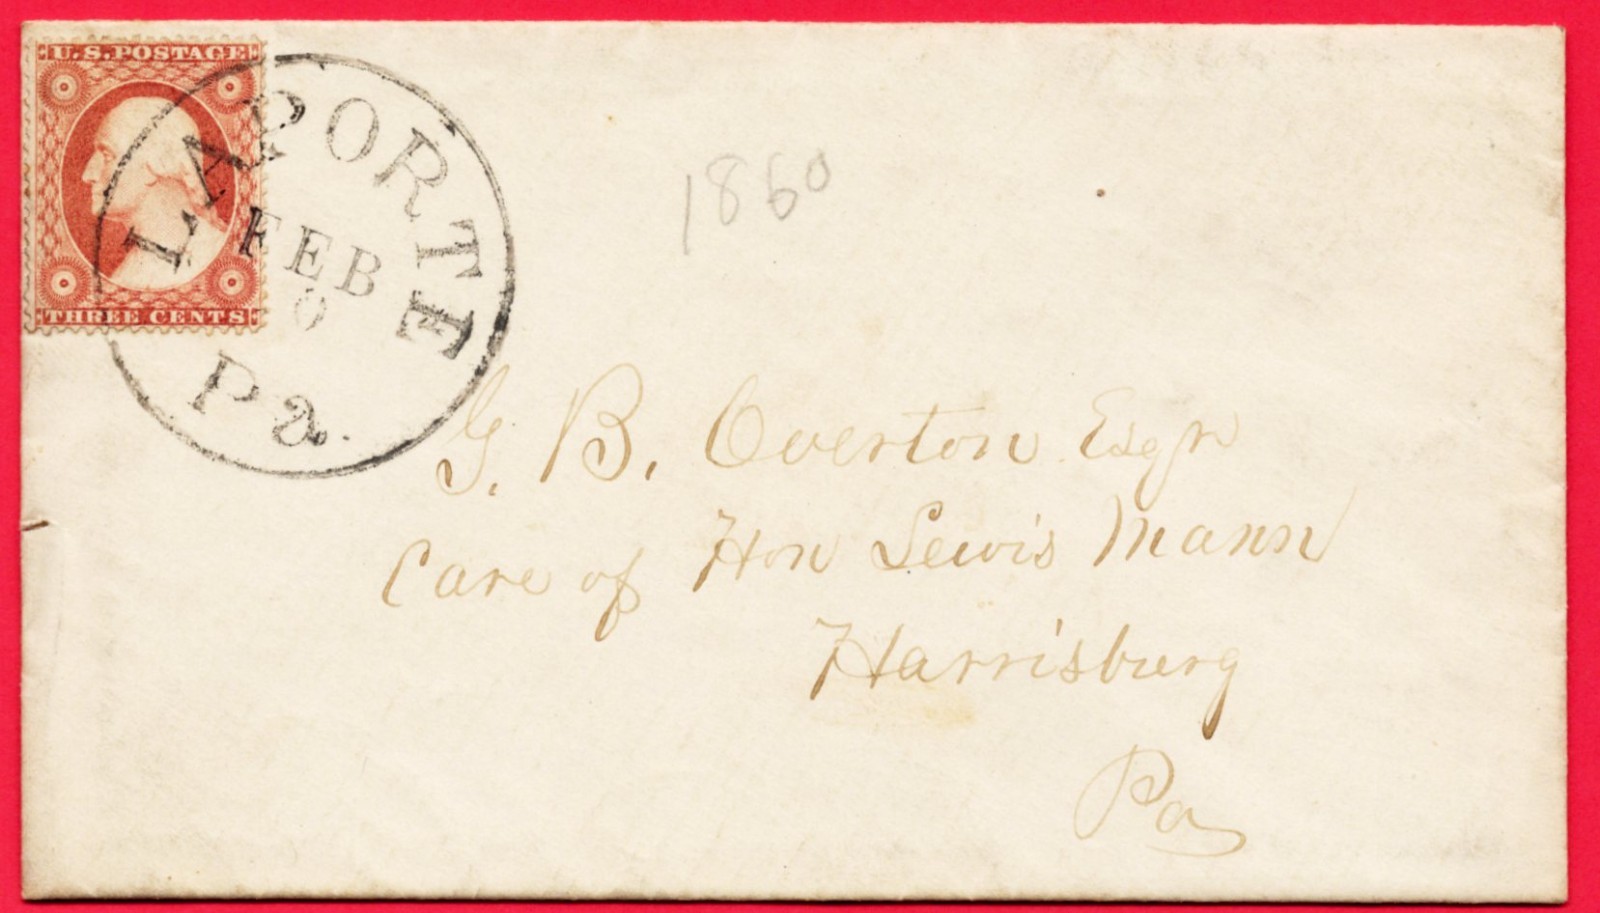 U.S. POSTAGE
THREE CENTS
LAPORTE
FEB
Pa.
1860
G. B. Overton Esqr
Care of Hon Lewis Mann
Harrisburg
Pa